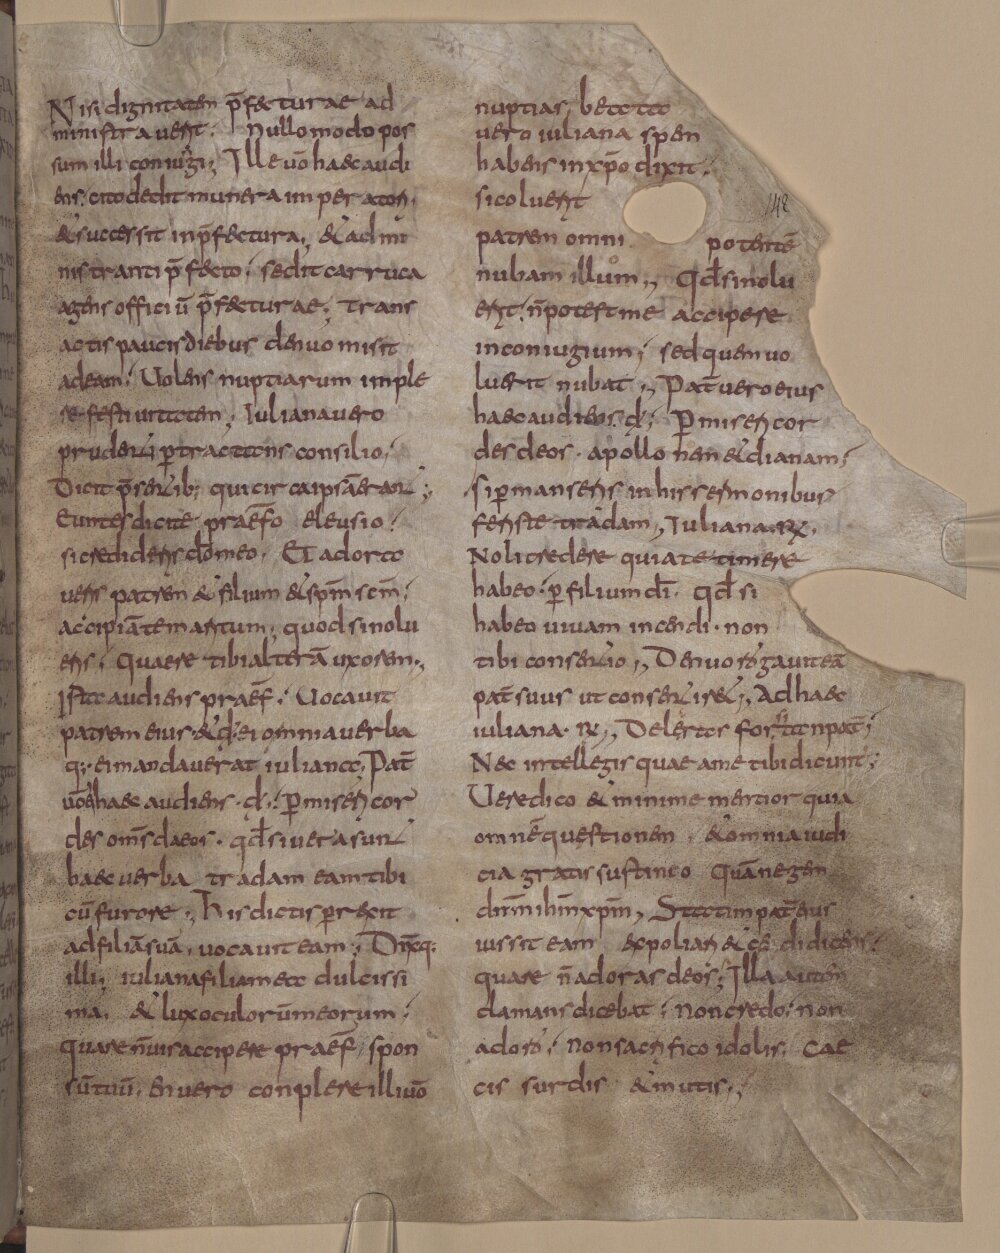 Nisi dignitatem p̄fecturae ad
ministraverit. Nullo modo pos
sum illi coniugi; Ille vō haec audi
ens, cito dedit munera imperatori,
& successit in p̄fectura, & admi
nistranti p̄fecto, sedit carruca
agens officiū p̄fecturae; Trans
actis paucis diebus denuo misit
ad eam. Volens nuptiarum imple
re festivitatem, Iuliana vero
prudenti ꝑtractans consilio,
Dicit p̄sentib; qui circa ipsā erant;
Euntes dicite praef̄o eleusio.
si credideris d̄o meo. Et adora
veris patrem & filium & sp̄m sc̄m;
accipiā te maritum, quod si nolu
eris, quaere tibi alterā uxorem,,
Ista audiens praef̄. Vocavit
patrem eius & d̄. ei omnia verba
q; ei mandaverat iuliana, Pat̄
vō haec audiens. d̄. ꝑ misericor
des om̄s daeos. qd̄ si vera sunt
haec verba tradam eam tibi
cū furore; His dictis perrexit
ad filiā suā, vocavit eam; Dixq;
illi; iuliana filia mea dulcissi
ma, & lux oculorū meorum;
quare n̄ vis accipere praef̄, spon
sū tuū, En vero conplere illi vō
nuptias, beata
vero iuliana spem
habens in xp̄o dixit;
si coluerit
patrem omni potentē
nubam illum,, Qd̄ si nolu
erit, n̄ potest me accipere
in coniugium; sed quem vo
luerit nubat,, Pat̄ vero eius
haec audiens. d̄; ꝑ misericor
des deos. apollonem & dianam;
si ꝑmanseris in his sermonibus
feris te tradam,, Iuliana. R̄.
Noli credere quia te timere
habeo. ꝑ filium dī. qd̄ si
habeo vivam incendi. non
tibi consentio,, Denuo rogavit eā
pat̄ suus ut consentiret, Ad haec
iuliana. R̄,, Delector forsitan pat̄;
Nec intellegis quae a me tibi dicunt̄;
Vere dico & minime mentior quia
omnē questionem, & omnia iudi
cia gratis sustineo Quā negem
dn̄m ihm̄ xp̄m, Statim pat̄ eius
iussit eam expoliari & cedi dicens;
quare n̄ adoras deos; Illa autem
clamans dicebat; Non credo; non
adoro; non sacrifico idolis; cae
cis surdis & mutis;
142